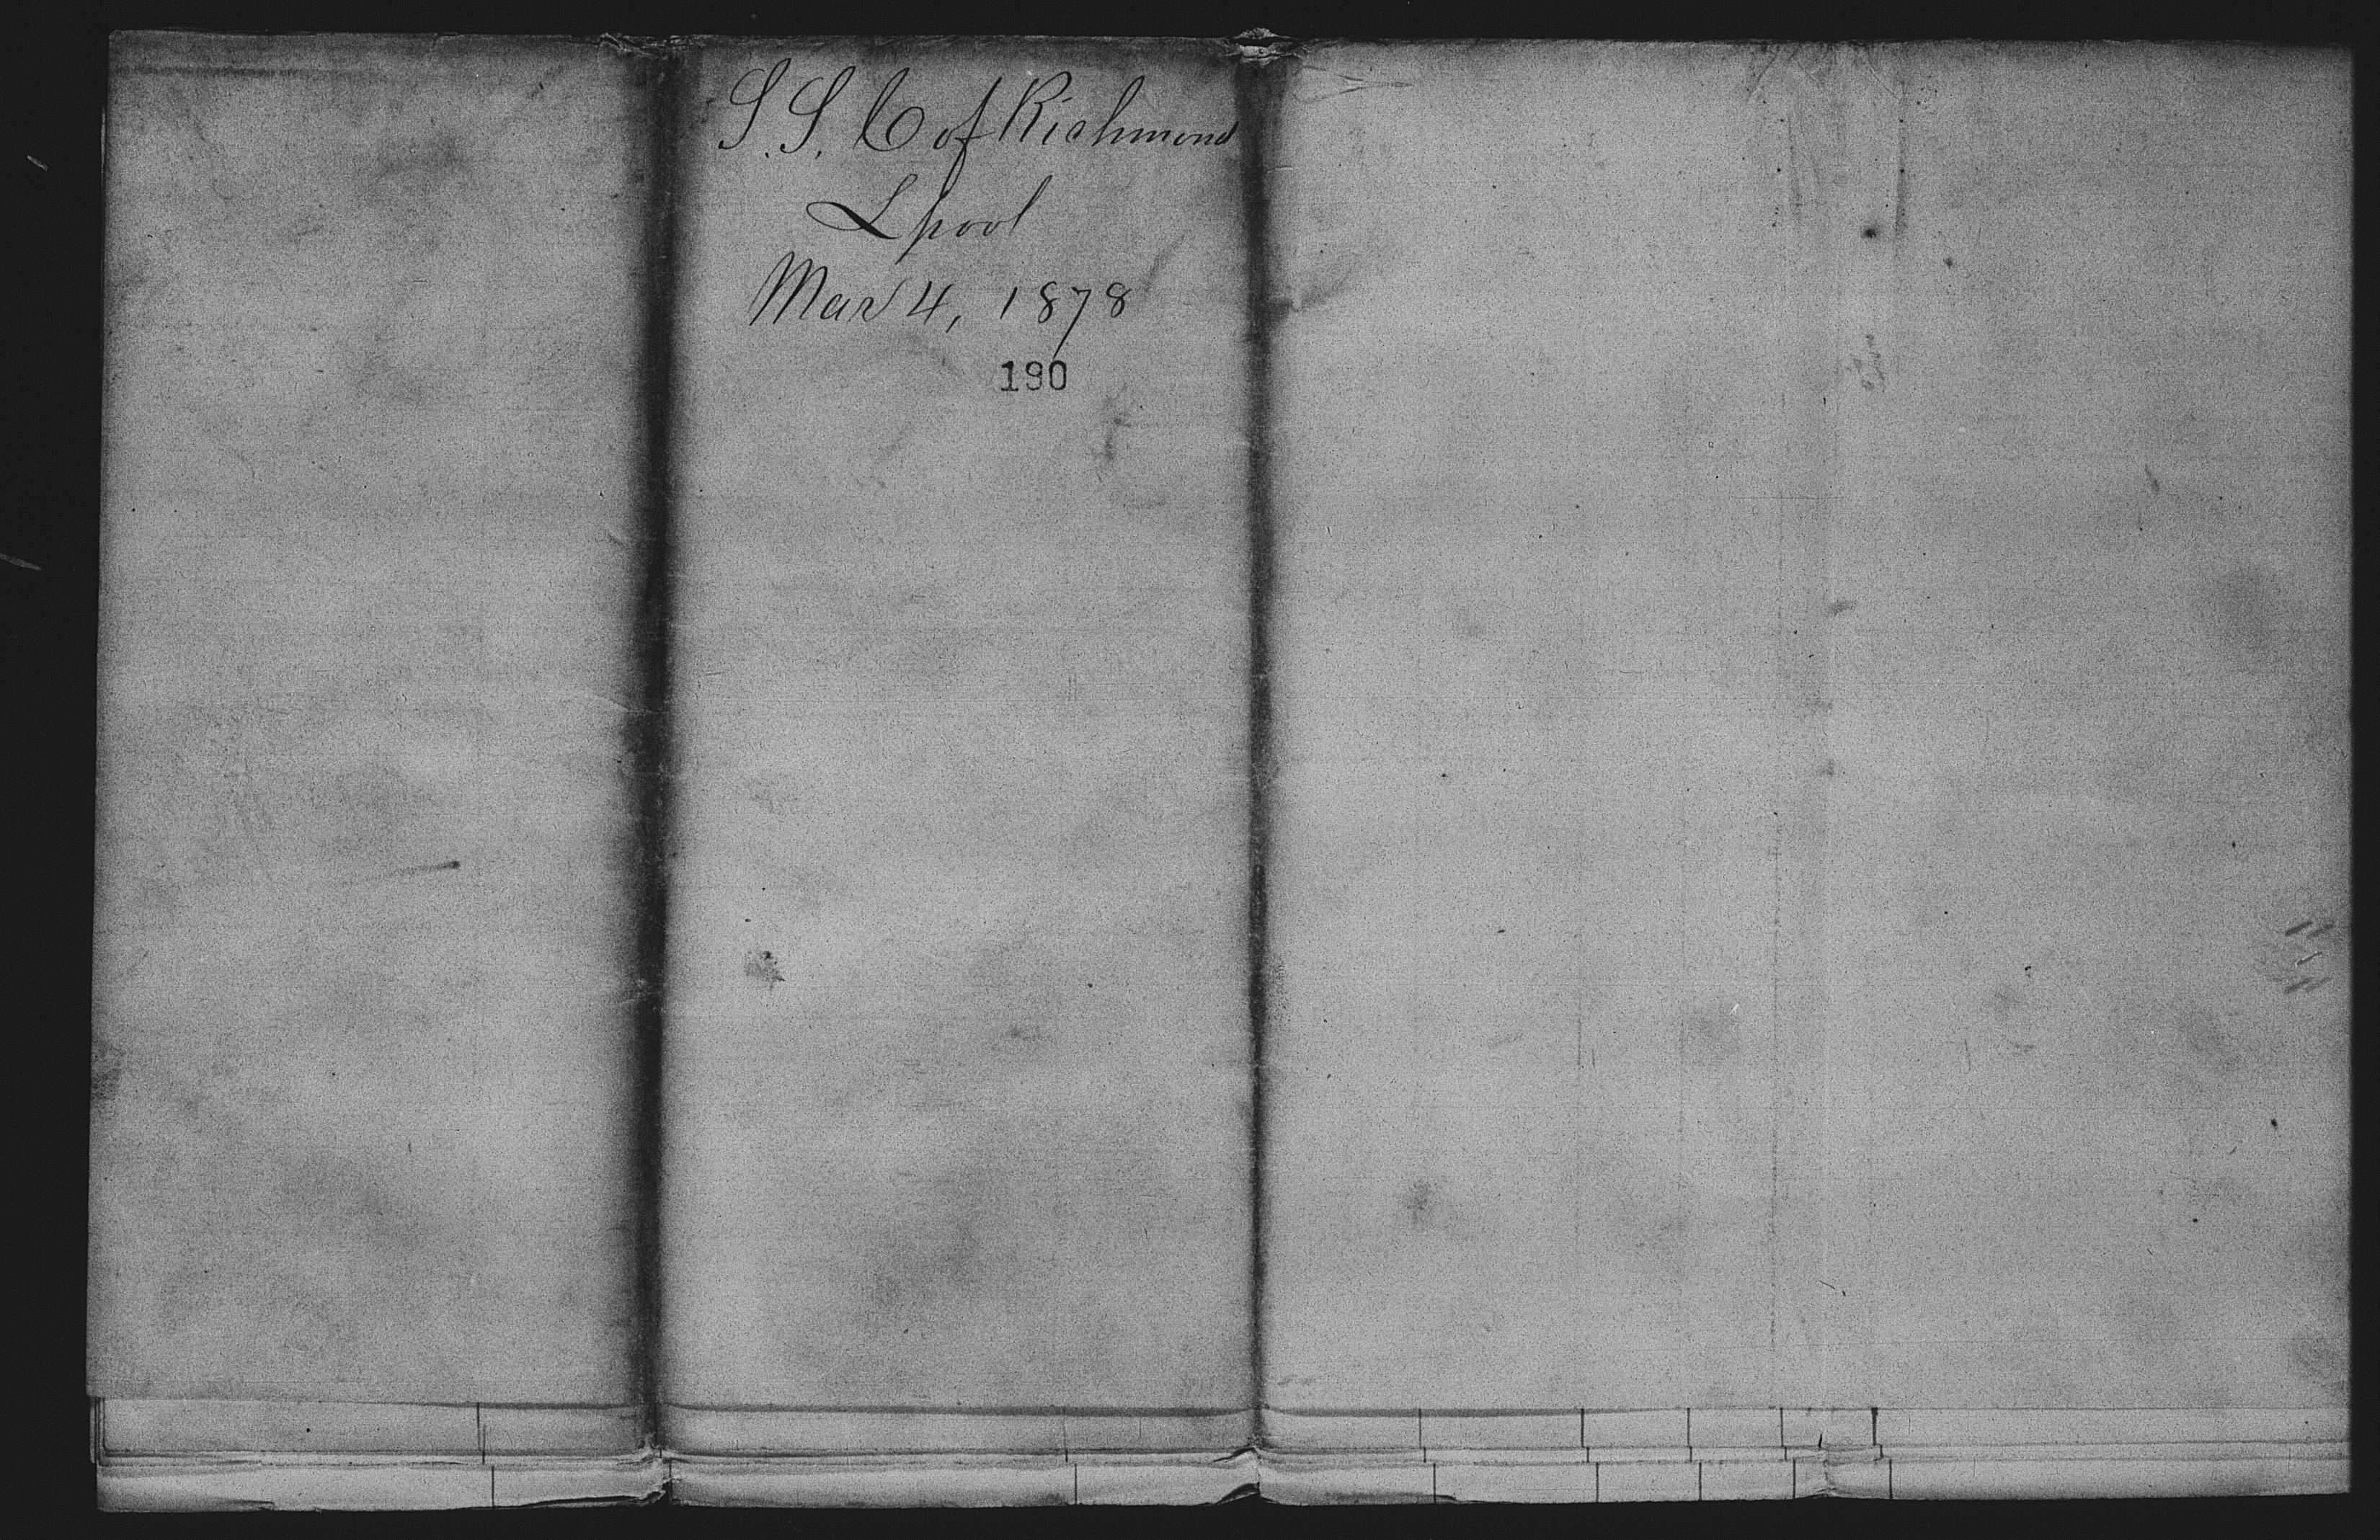 S. S. C of Richmond
Lpool
Mar 4, 1878
190